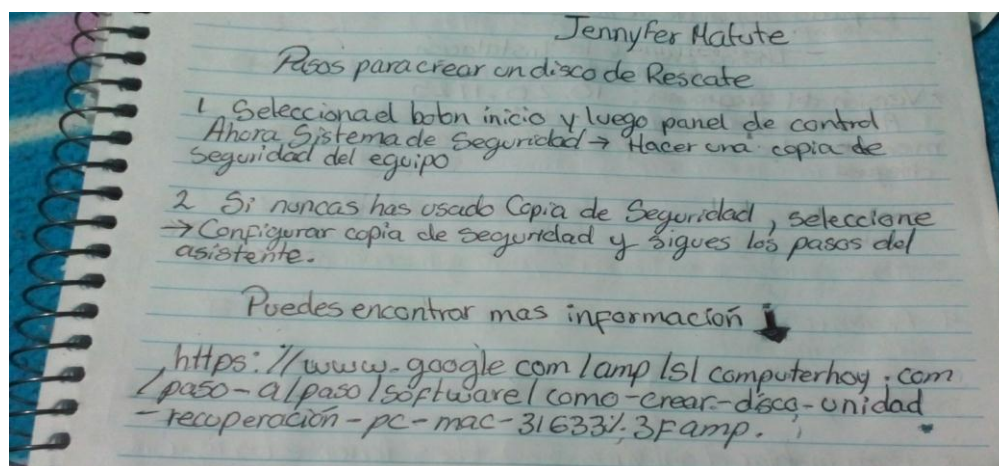 Jennyfer Matute
Pasos para crear un disco de Rescate
1 Selecciona el botn inicio y luego panel de control
Ahora Sistema de Seguridad → Hacer una copia de
seguridad del equipo
2 Si nuncas has usado Copia de Seguridad, seleccione
→ Configurar copia de seguridad y sigues los pasos del
asistente.
Puedes encontrar mas información ↓
https://www.google.com/amp/s/computerhoy.com
/paso-a/paso/software/como-crear-disco-unidad
-recuperación-pc-mac-31633%3Famp.